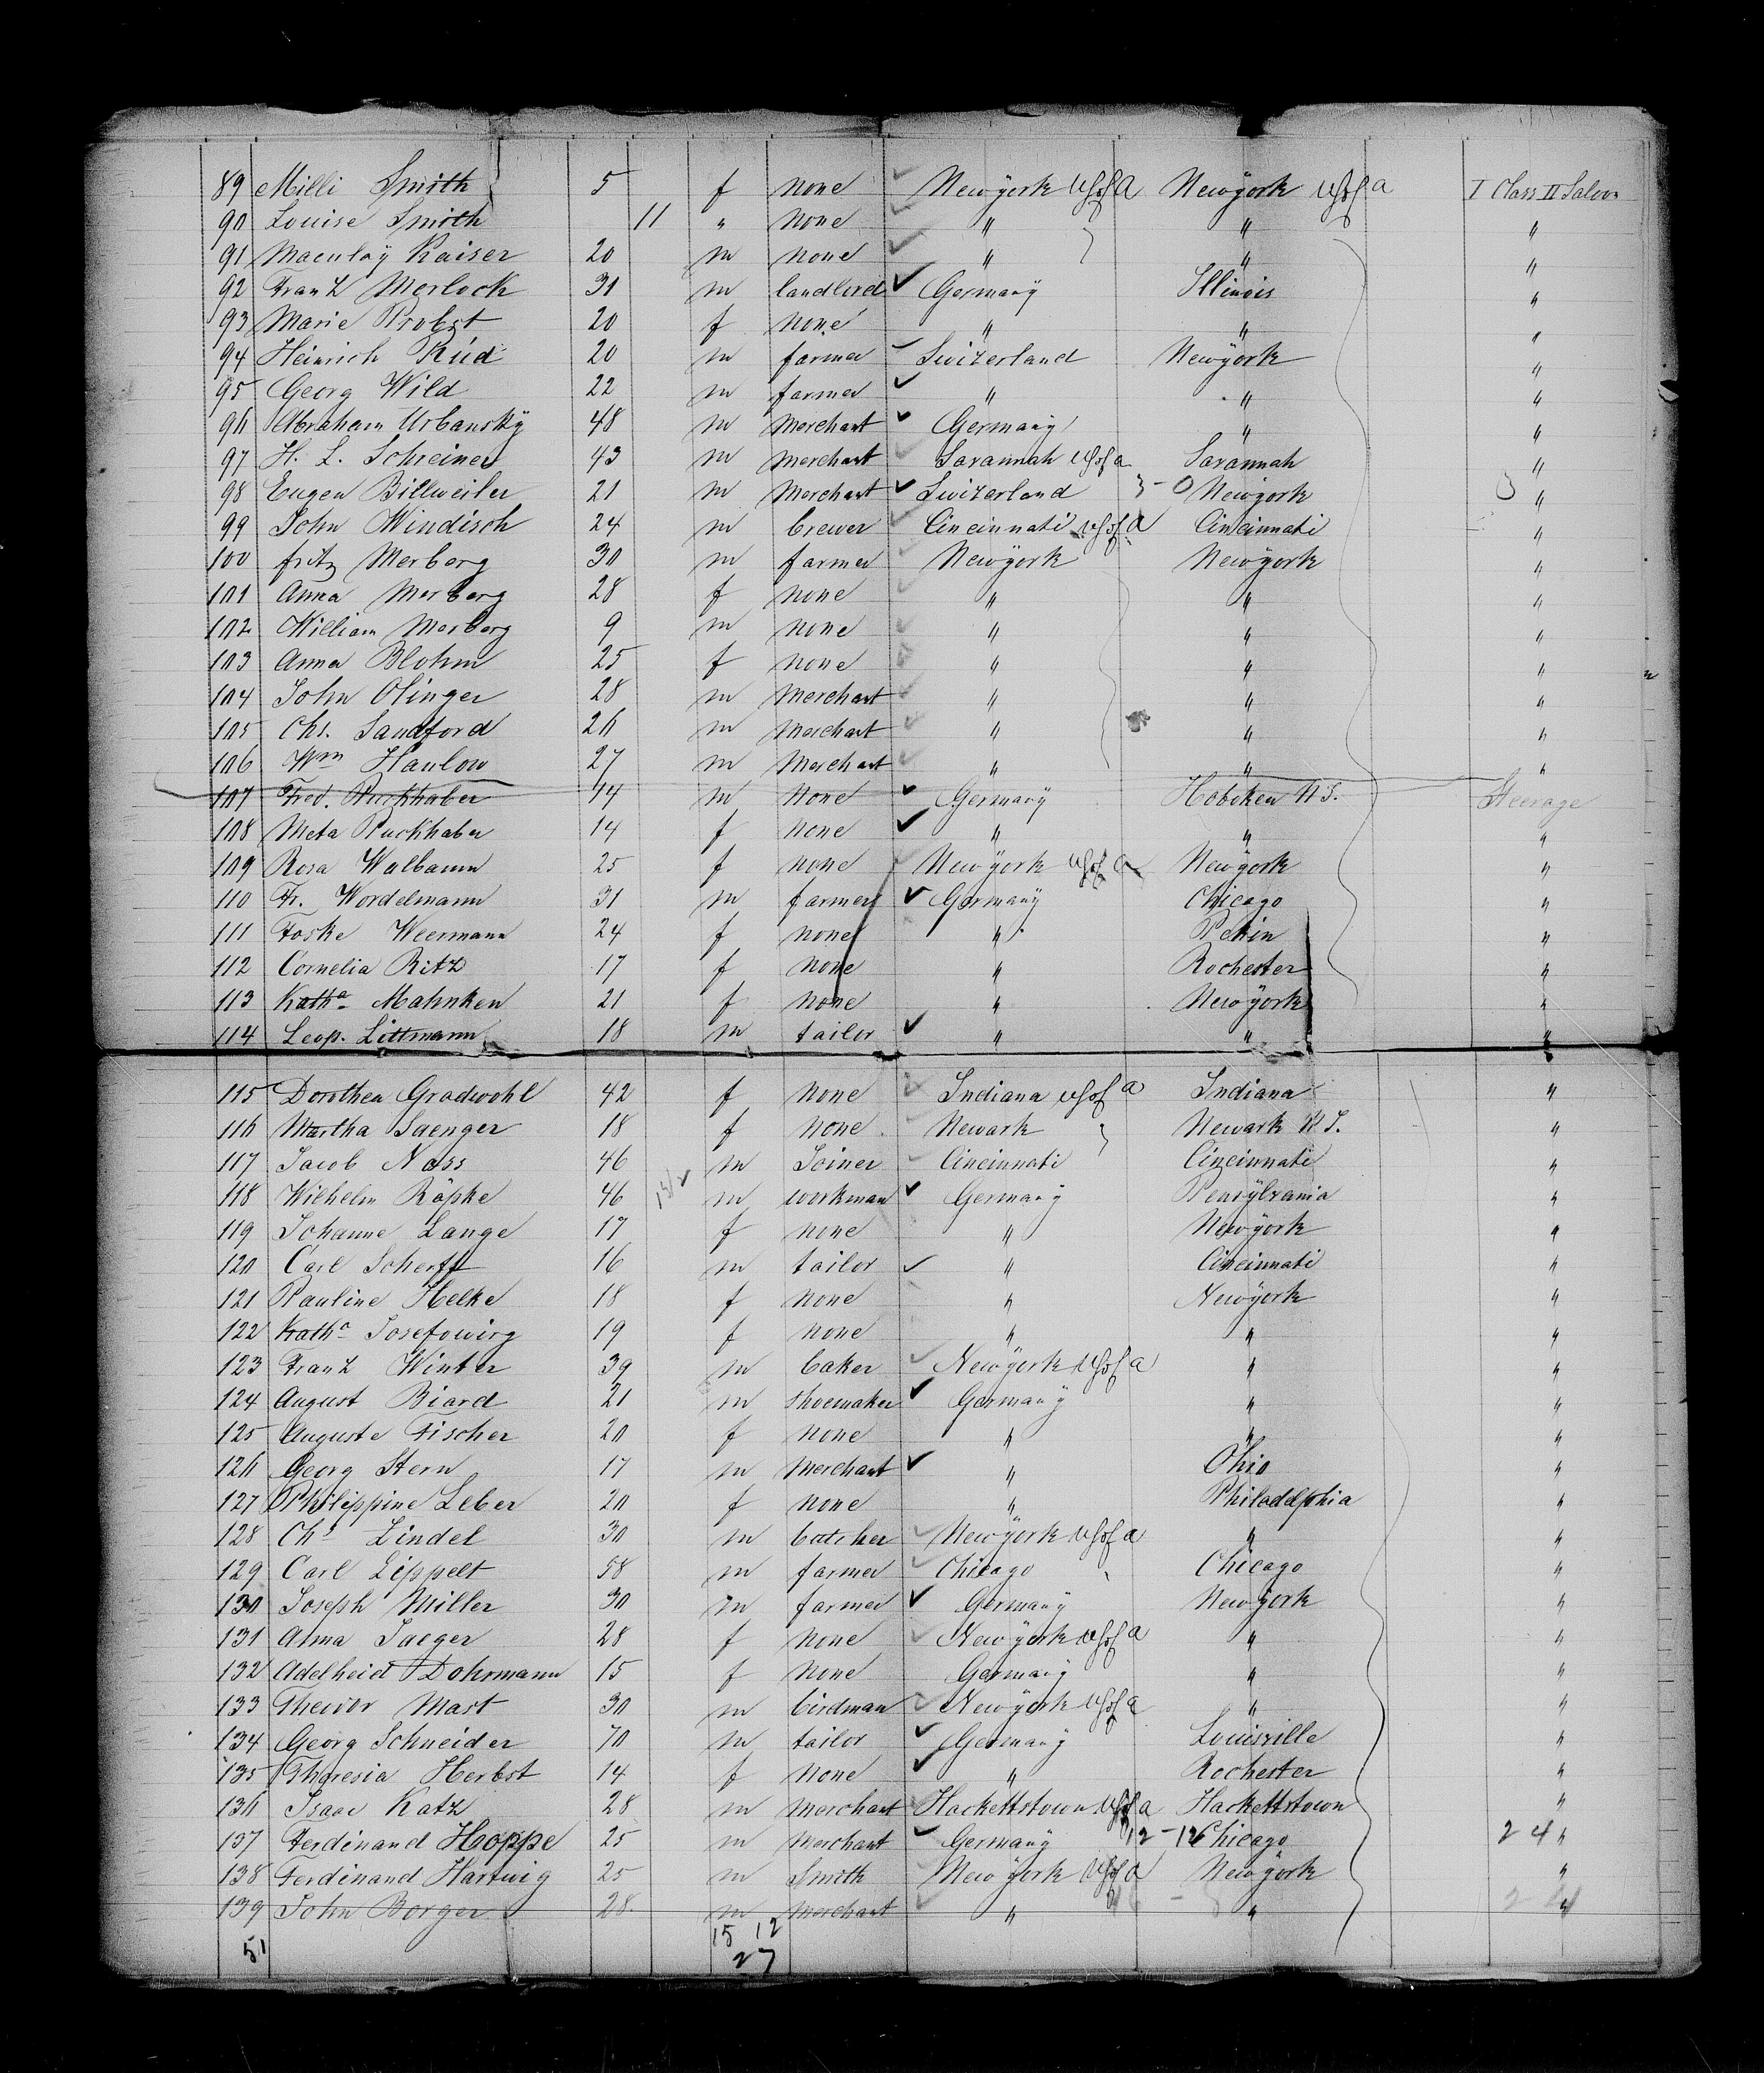 89 Milli Smith 5 f none Newyork USofA Newyork USofA I Class II Saloon
90 Louise Smith 11 " none " " "
91 Maculay Kaiser 20 m none " " "
92 Franz Merlock 31 m landlord Germany Illinois "
93 Marie Probst 20 f none " " "
94 Heinrich Rüd 20 m farmer Swizerland Newyork "
95 Georg Wild 22 m farmer " " "
96 Abraham Urbansky 48 m Merchant Germany " "
97 H. L. Schreiner 43 m Merchant Savannah USofA Savannah "
98 Eugen Billweiler 21 m Merchant Swizerland 3-0 Newyork "
99 John Windisch 24 m brewer Cincinnati USofA Cincinnati "
100 fritz Merberg 30 m farmer Newyork Newyork "
101 Anna Merberg 28 f none " " "
102 William Merberg 9 m none " " "
103 Anna Blohm 25 f none " " "
104 John Olinger 28 m Merchant " " "
105 Chs. Sandford 26 m Merchant " " "
106 Wm Hanlow 27 m Merchant " " "
107 Fred. Puckhaber 14 m none Germany Hoboken N.J. Steerage
108 Meta Puckhaber 14 f none " " "
109 Rosa Walbaum 25 f none Newyork USofA Newyork "
110 Fr. Wordelmann 31 m farmer Germany Chicago "
111 Foske Weermann 24 f none " Pekin "
112 Cornelia Ritz 17 f none " Rochester "
113 Katha Mahnken 21 f none " Newyork "
114 Leop. Littmann 18 m tailor " " "
115 Dorothea Gradwohl 42 f none Indiana USofA Indiana "
116 Martha Saenger 18 f none Newark Newark N.J. "
117 Jacob Nass 46 m Joiner Cincinnati Cincinnati "
118 Wilhelm Röpke 46 m workman Germany Pensylvania "
119 Johanne Lange 17 f none " Newyork "
120 Carl Scherff 16 m tailor " Cincinnati "
121 Pauline Helke 18 f none " Newyork "
122 Katha Josefowirg 19 f none " " "
123 Franz Winter 39 m baker Newyork USofA " "
124 August Biard 21 m shoemaker Germany " "
125 Auguste Fischer 20 f none " " "
126 Georg Stern 17 m Merchant " Ohio "
127 Philippine Leber 20 f none " Philadelphia "
128 Chs Lindel 30 m butcher Newyork USofA " "
129 Carl Lippelt 58 m farmer Chicago Chicago "
130 Joseph Miller 30 m farmer Germany Newyork "
131 Alma Jaeger 28 f none Newyork USofA " "
132 Adelheid Dohrmann 15 f none Germany " "
133 Theodor Mast 30 m birdman Newyork USofA " "
134 Georg Schneider 70 m tailor Germany Louisville "
135 Theresia Herbst 14 f none " Rochester "
136 Isaac Katz 28 m Merchant Hackettstown USofA Hackettstown "
137 Ferdinand Hoppe 25 m Merchant Germany 12-12 Chicago 24 "
138 Ferdinand Hartwig 25 m Smith Newyork USofA Newyork "
139 John Borger 28 m Merchant " " "
51 15 12
27